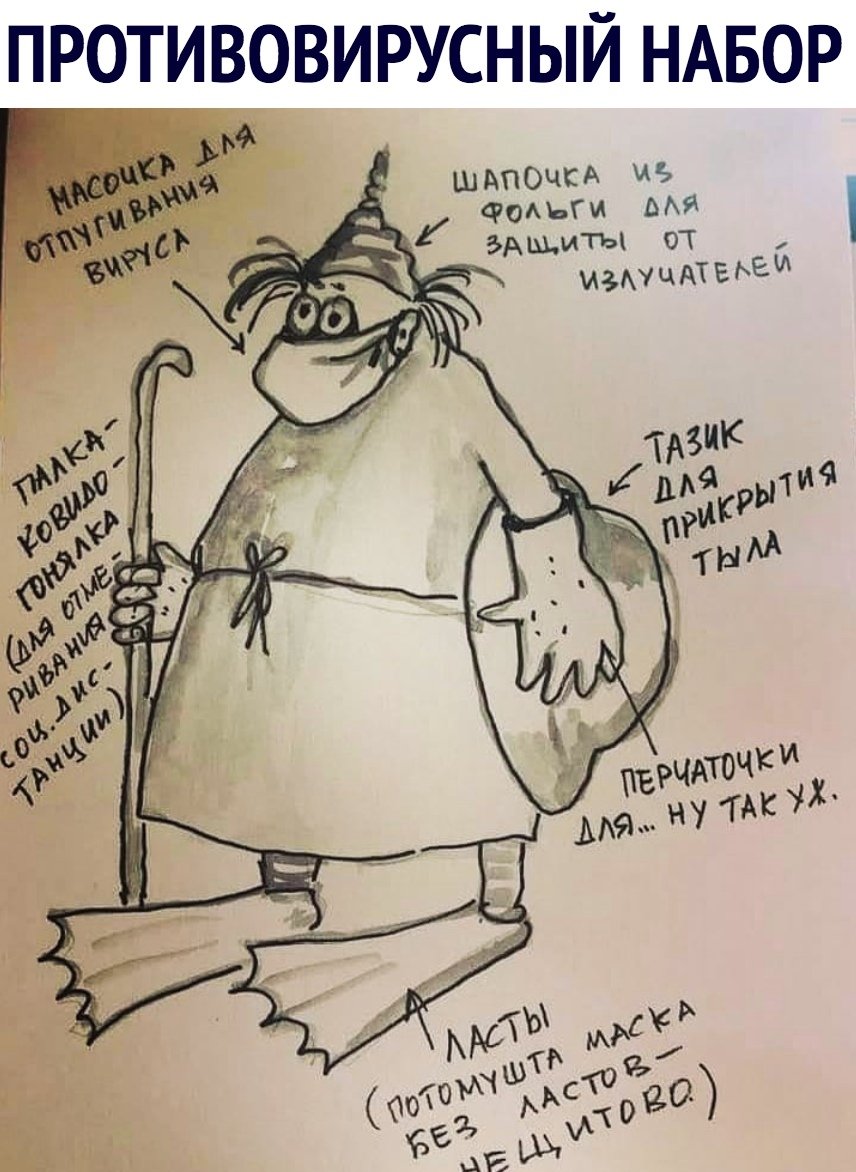 ПРОТИВОВИРУСНЫЙ НАБОР
МАСОЧКА ДЛЯ
ОТПУГИВАНИЯ
ВИРУСА
ШАПОЧКА ИЗ
ФОЛЬГИ ДЛЯ
ЗАЩИТЫ ОТ
ИЗЛУЧАТЕЛЕЙ
ПАЛКА-
КОВИДО-
ГОНЯЛКА
(ДЛЯ ОТМЕ-
РИВАНИЯ
СОЦ. ДИС-
ТАНЦИИ)
ТАЗИК
ДЛЯ
ПРИКРЫТИЯ
ТЫЛА
ПЕРЧАТОЧКИ
ДЛЯ... НУ ТАК УЖ.
ЛАСТЫ
(ПОТОМУШТА МАСКА
БЕЗ ЛАСТОВ-
НЕЩИТОВО.)